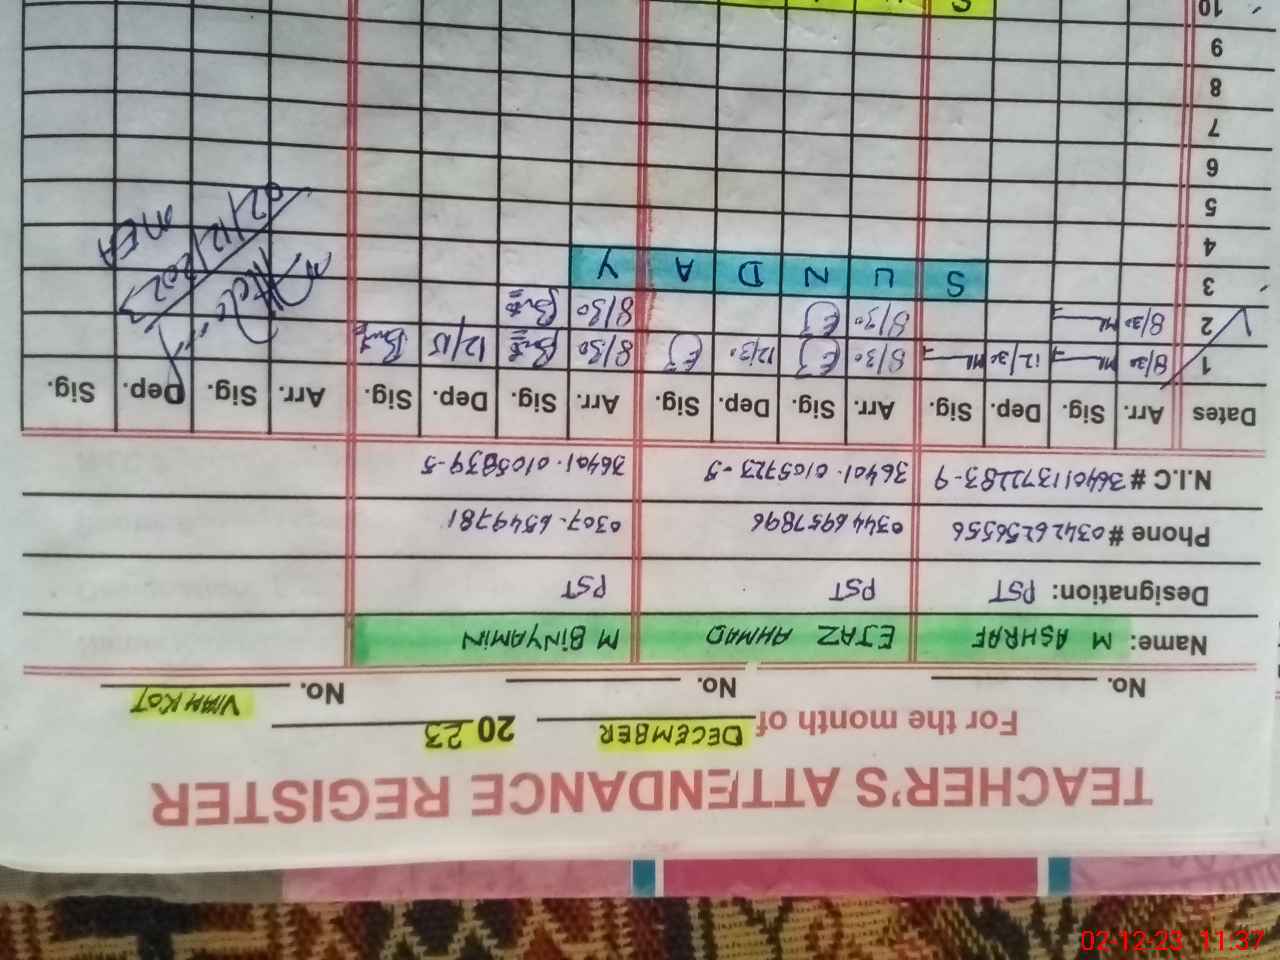 TEACHER'S ATTENDANCE REGISTER
For the month of DECEMBER 2023 VIAHI KOT
No. No. No.
Name: M ASHRAF EJAZ AHMAD M BINYAMIN
Designation: PST PST PST
Phone # 03426256556 03446957896 0307-6549781
N.I.C # 3640113712283-9 36401-0105723-5 36401-0105839-5
Dates Arr. Sig. Dep. Sig. Arr. Sig. Dep. Sig. Arr. Sig. Dep. Sig. Arr. Sig. Dep. Sig.
1 8/30 12/30 8/30 12/30 8/30 12/15
2 8/30 8/30 8/30
3 S U N D A Y
4
5
6
7
8
9
10 S
MEA
02/12/2023
02-12-23 11:37